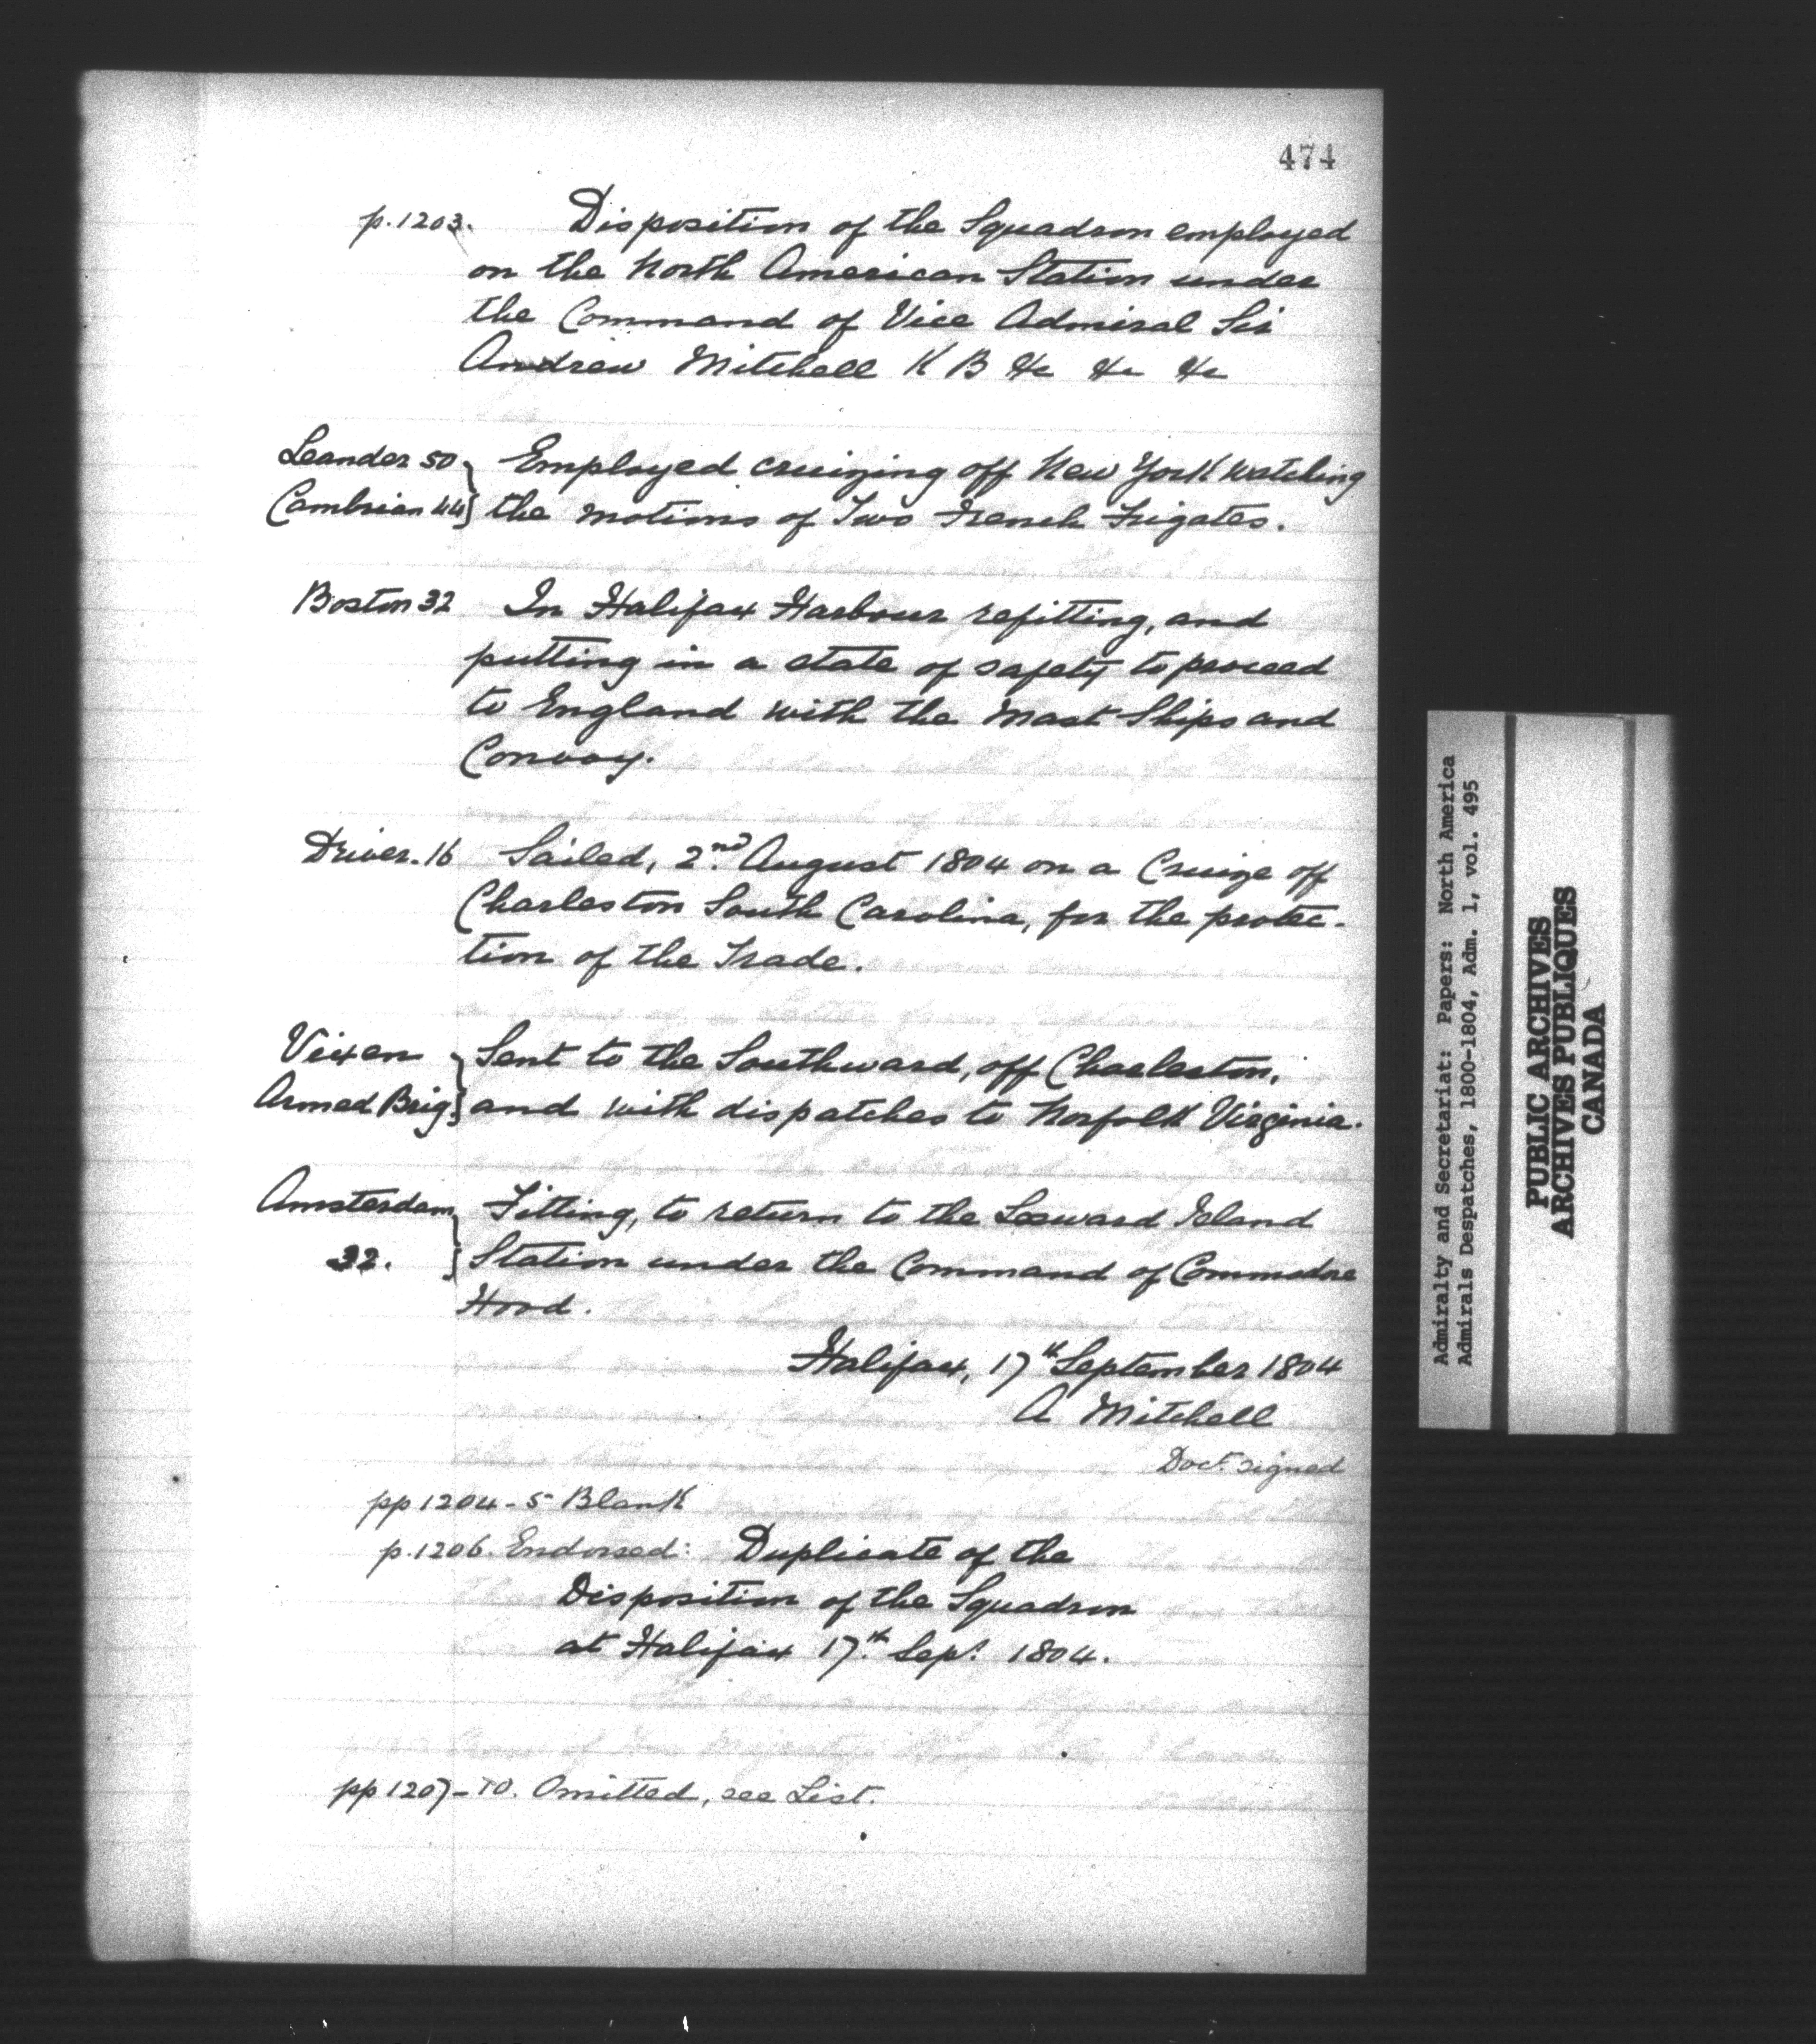 474
p.1203. Disposition of the Squadron employed
on the North American Station under
the Command of Vice Admiral Sir
Andrew Mitchell K B &c &c &c
Leander 50 } Employed cruizing off New York watching
Cambrian 44 } the motions of Two French Frigates.
Boston 32 In Halifax Harbour refitting, and
putting in a state of safety to proceed
to England with the Mast Ships and
Convoy.
Driver. 16 Sailed, 2nd. August 1804 on a Cruize off
Charleston South Carolina, for the protec-
tion of the Trade.
Vixen } Sent to the Southward, off Charleston,
Armed Brig } and with dispatches to Norfolk Virginia.
Amsterdam } Fitting, to return to the Leeward Island
32. } Station under the Command of Commodore
Hood.
Halifax, 17th September 1804
A Mitchell
Doct. signed
pp 1204-5 Blank
p.1206. Endorsed: Duplicate of the
Disposition of the Squadron
at Halifax 17th. Sept. 1804.
pp 1207-10. Omitted, see List.
Admiralty and Secretariat: Papers: North America
Admirals Despatches, 1800-1804, Adm. 1, vol. 495
PUBLIC ARCHIVES
ARCHIVES PUBLIQUES
CANADA